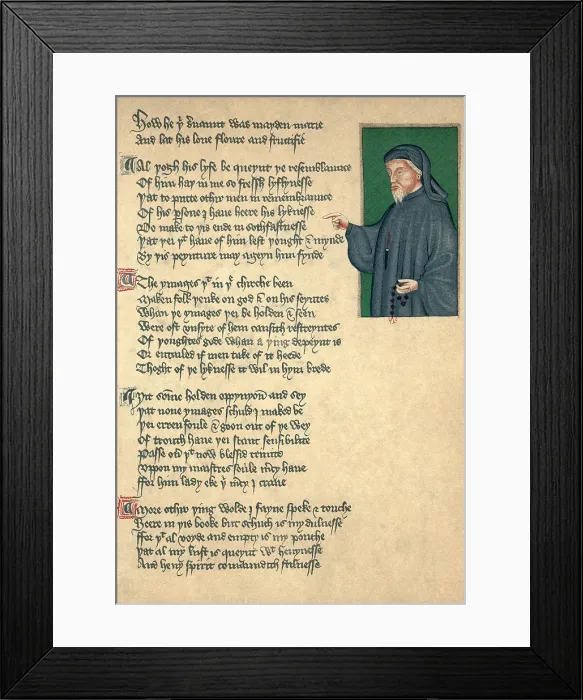 How he yͤ ẜuaunt was mayden marie
And lat his loue floure and fructifie
Al yogh his lyfe be queynt ye resemblaunce
Of him hay in me so fressh lyflynesse
Yat to putte othir men in remembraunce
Of his ꝑsone I haue heere his lyknesse
Do make to yis ende in sothfastnesse
Yat yei yͭ haue of him left yought & mynde
By yis peynture may ageyn him fynde
The ymages yͭ in yͤ chirche been
Maken folk yenke on god & on his seyntes
Whan ye ymages yei be holden & seen
Were oft vnsyte of hem causith restreyntes
Of youghtes gode whan a ying depeynt is
Or entailed if men take of it heede
Thoght of ye lyknesse it wil in hym brede
Yit some holden oppynyoun and sey
Yat none ymages schuld I maked be
Yei erren foule & goon out of ye wey
Of trouth haue yei scant sensibilite
Passe ouer yͭ now blessid trinite
Vppon my maistres soule mcy haue
ffor him lady eke yͥ mcy I craue
More othir ying wolde I fayne speke & touche
Heere in yis booke but schuch is my dulnesse
ffor yͭ al voyde and empty is my pouche
Yat al my lust is queynt wͭ heuynesse
And heuy spirit comaundith stilnesse